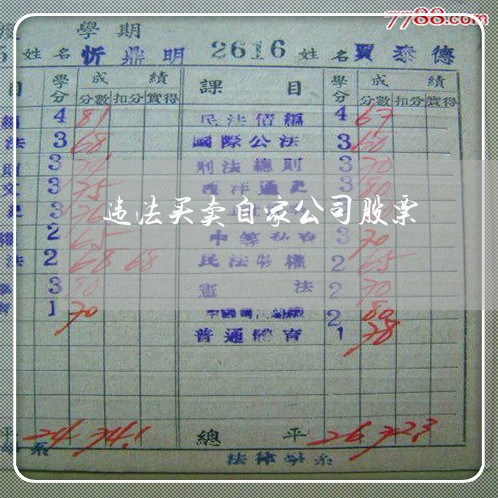 7788.com
學期
姓名 忻鼎明 2616 姓名 賈泰德
目 學分 成績 課目 學分 成績
分數 扣分 實得 分數 扣分 實得
4 81 民法債編 4 67
法 3 68 國際公法 3 60
3 刑法總則 3 70
3 75 西洋通史 3 80
2
違法买卖自家公司股票
權 2 65 3 70
法 2 68 68 民法物權 2 65
3 80 憲法 2 70
1 70 2 80
普通體育 1 78
平 24 74.1 總平 26 72.3
系 法律學系